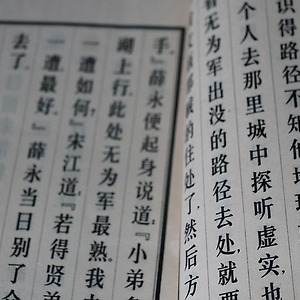 识得路径不知他地
个人去那里城中探听虚实,也
看无为军出没的路径去处,就要
的住处了,然后方
手。』薛永便起身说道:『小弟多
湖上行,此处无为军最熟。我
一遭如何。』宋江道:『若得贤弟
一遭最好。』薛永当日别了
去了。